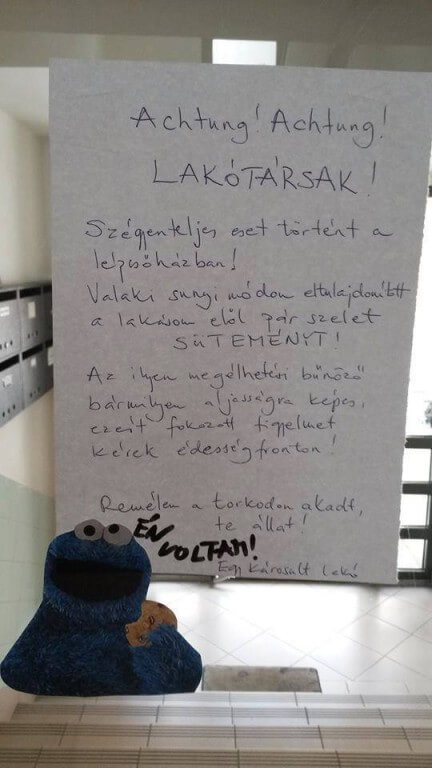 Achtung! Achtung!
LAKÓTÁRSAK!
Szégyenteljes eset történt a
lépcsőházban!
Valaki sunyi módon eltulajdonított
a lakásom elől pár szelet
SÜTEMÉNYT!
Az ilyen megélhetési bűnöző
bármilyen aljasságra képes,
ezért fokozott figyelmet
kérek édességfronton!
Remélem a torkodon akadt,
te állat!
ÉN
VOLTAM!
Egy károsult lakó